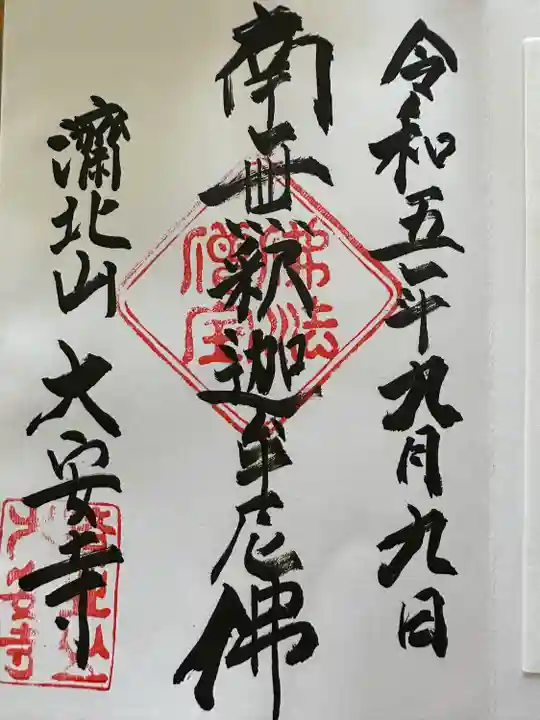 令和五年九月九日
南無釈迦牟尼佛
佛法僧宝
濟北山 大安寺